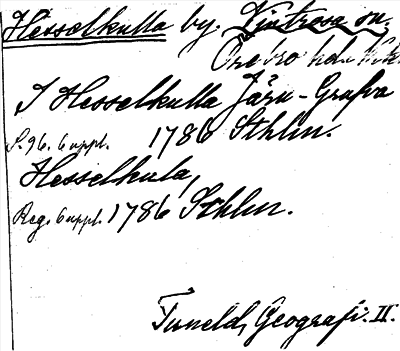 Hesselkulla by. Vintrosa sn.
Örebro hdn
I Hesselkulla Järn-Grufva
S. 96. 6 uppl. 1786 Sthlm.
Hesselkula,
Reg. 6 uppl. 1786 Sthlm.
Tuneld, Geografi. II.